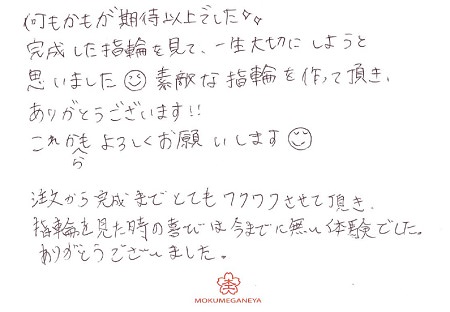 何もかもが期待以上でした✧✧
完成した指輪を見て、一生大切にしようと
思いました☺ 素敵な指輪を作って頂き、
ありがとうございます!!
これからもよろしくお願いします☺
注文から完成までとてもワクワクさせて頂き、
指輪を見た時の喜びは今までに無い体験でした。
ありがとうございました。
MOKUMEGANEYA